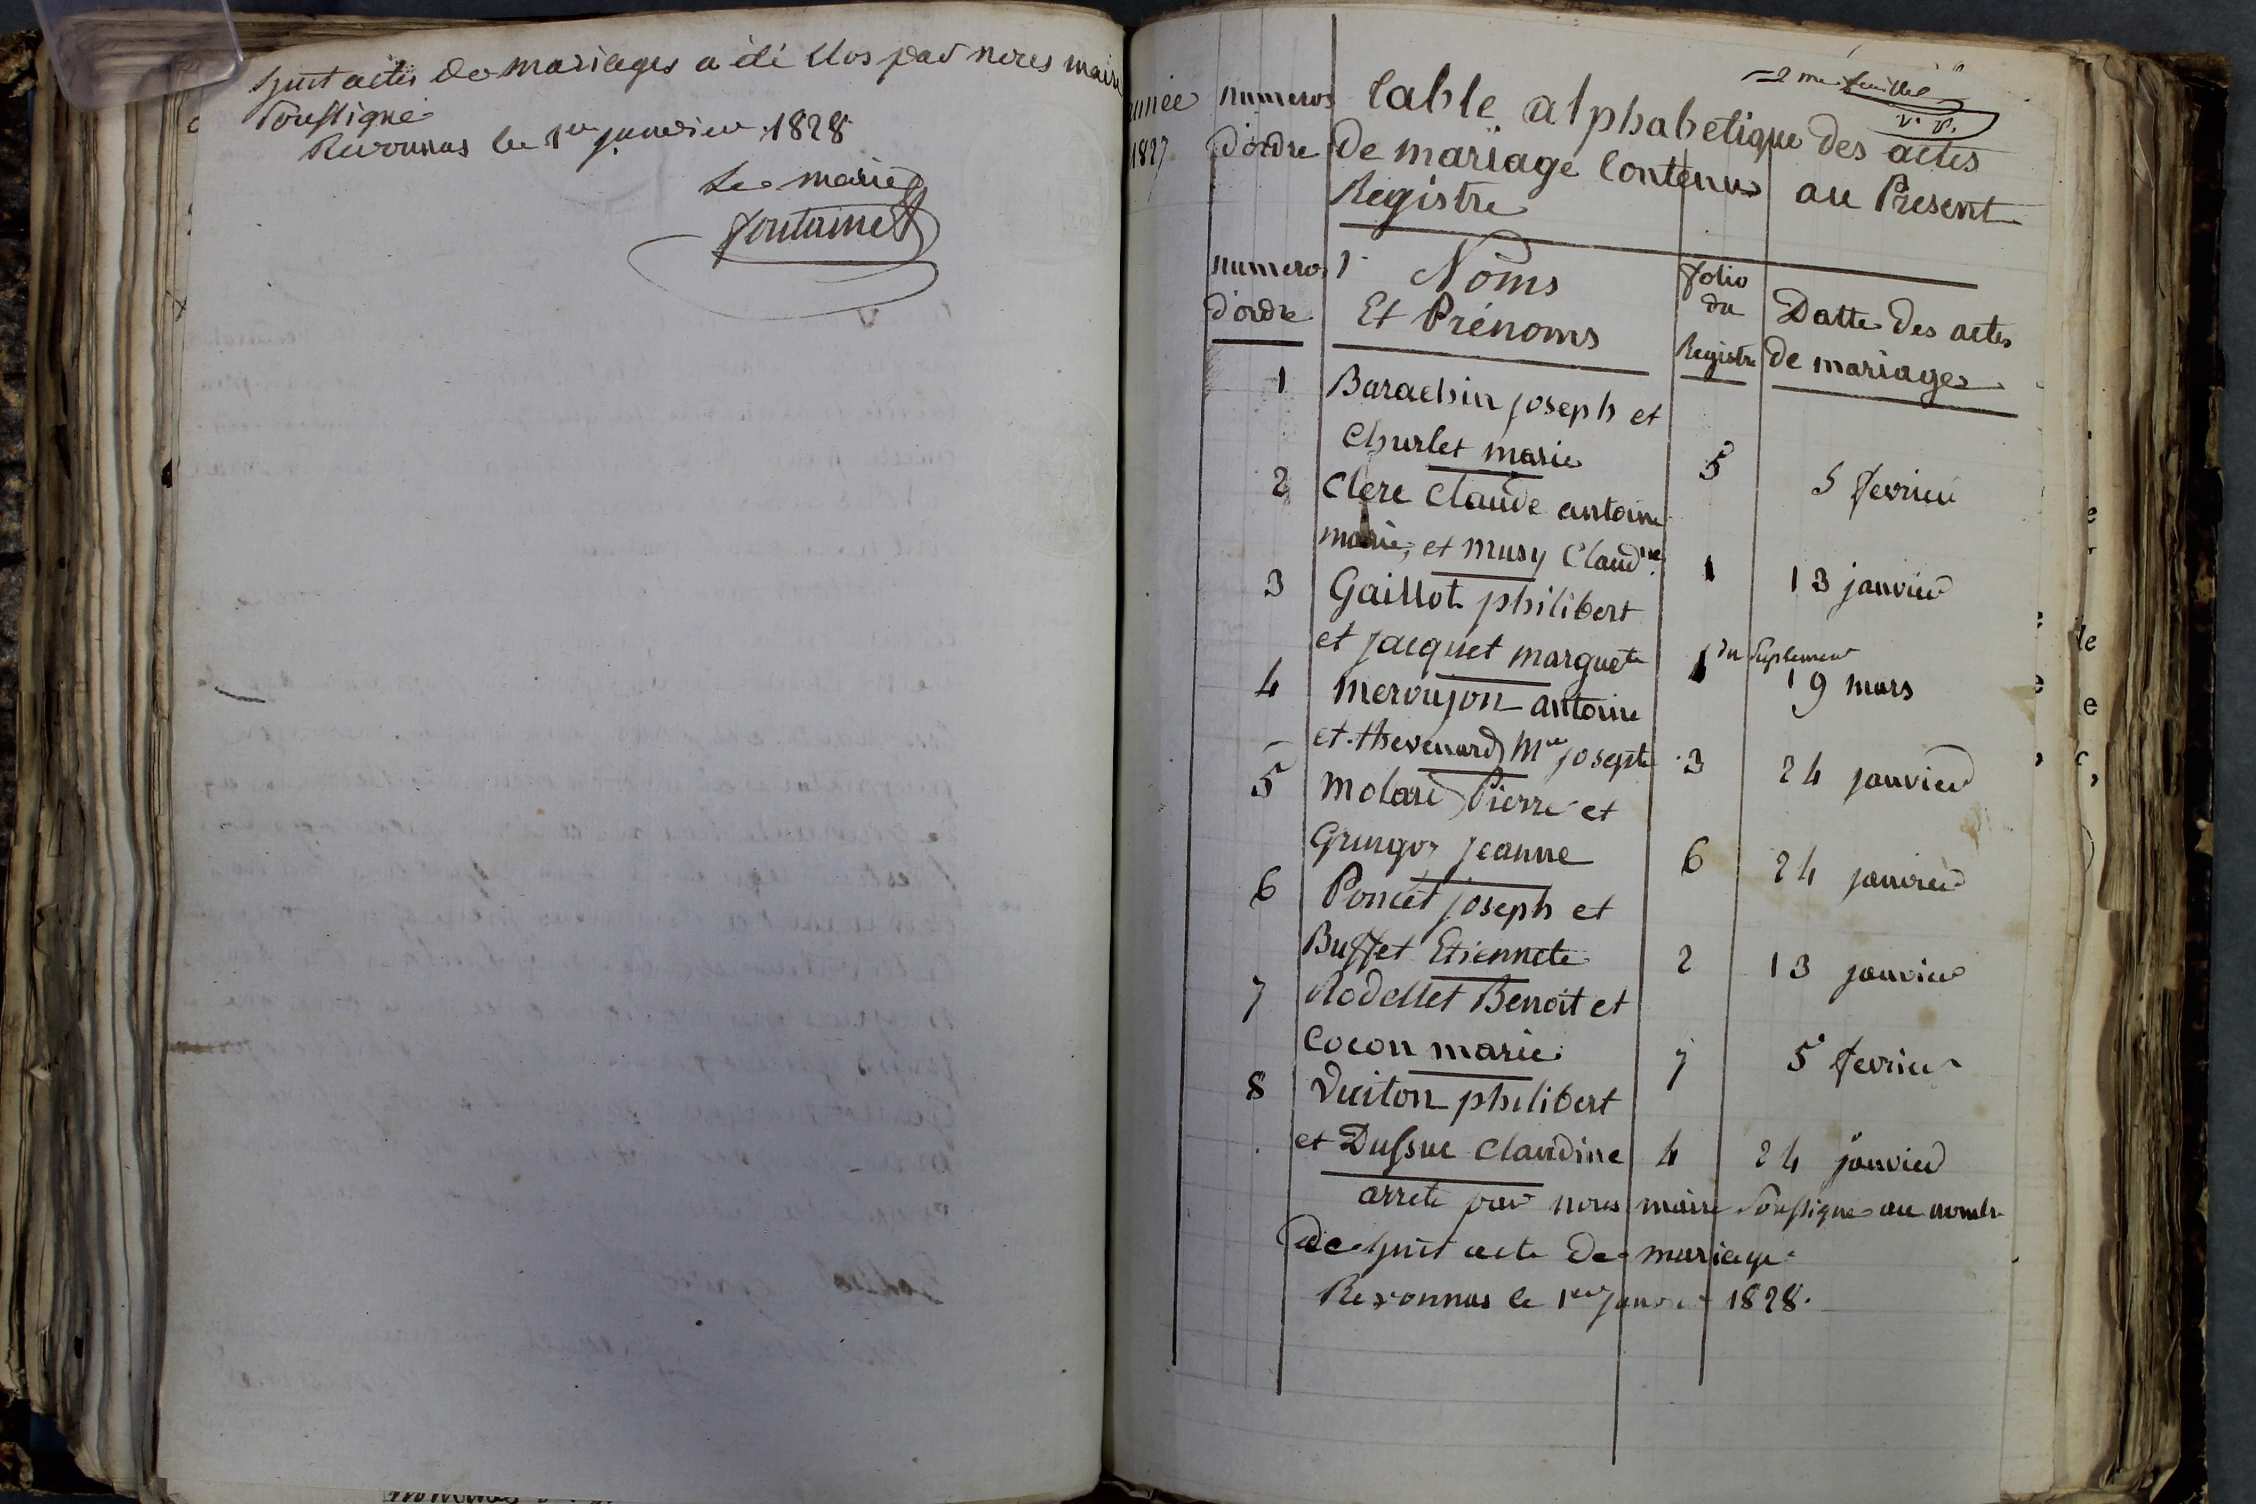 huit actes de mariages a été clos par nous maire
soussigné
Revonnas le 1er janvier 1828
Le maire
Fontaine
2me feuillet
V. P.
année
1827
numeros
d'ordre
Table alphabetique des actes
de mariage contenus au Présent
Registre
numeros
d'ordre
Noms
Et Prénoms
folio
du
Registre
Datte des actes
de mariages
1 Barachin joseph et
Churlet marie 5 5 fevrier
2 Clere Claude antoine
marie, et musy Claudine 1 13 janvier
3 Gaillot philibert
et jacquet marguete 1 du suplement 19 mars
4 mervujon antoine
et thevenard Mie josephte 3 24 janvier
5 molard Pierre et
Gringoz jeanne 6 24 janvier
6 Poncet joseph et
Buffet Etiennete 2 13 janvier
7 Rodellet Benoit et
Cocon marie 7 5 fevrier
8 Vuiton philibert
et Dussuc Claudine 4 24 janvier
arrete par nous maire soussigné au nombre
de huit acte de mariage
Revonnas le 1er janvier 1828.